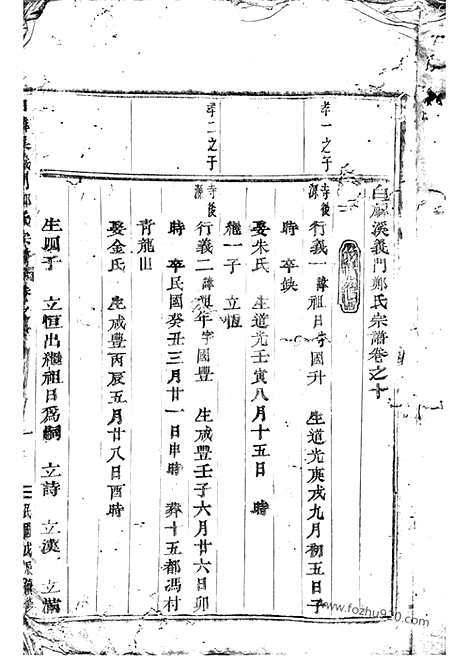 白麟溪義門鄭氏宗譜卷之十
孝一之子
寺後
源
行義一諱祖日字國升 生道光庚戌九月初五日子
時 卒缺
娶朱氏 生道光壬寅八月十五日 時
繼一子 立恆
孝二之子
寺後
源
行義二諱祖年字國豐 生咸豐壬子六月廿六日卯
時 卒民國癸丑三月廿一日申時 葬十五都馮村
青龍山
娶金氏 生咸豐丙辰五月廿八日酉時
生四子 立恒出繼祖日爲嗣 立詩 立漢 立滿
www.fozhu920.com